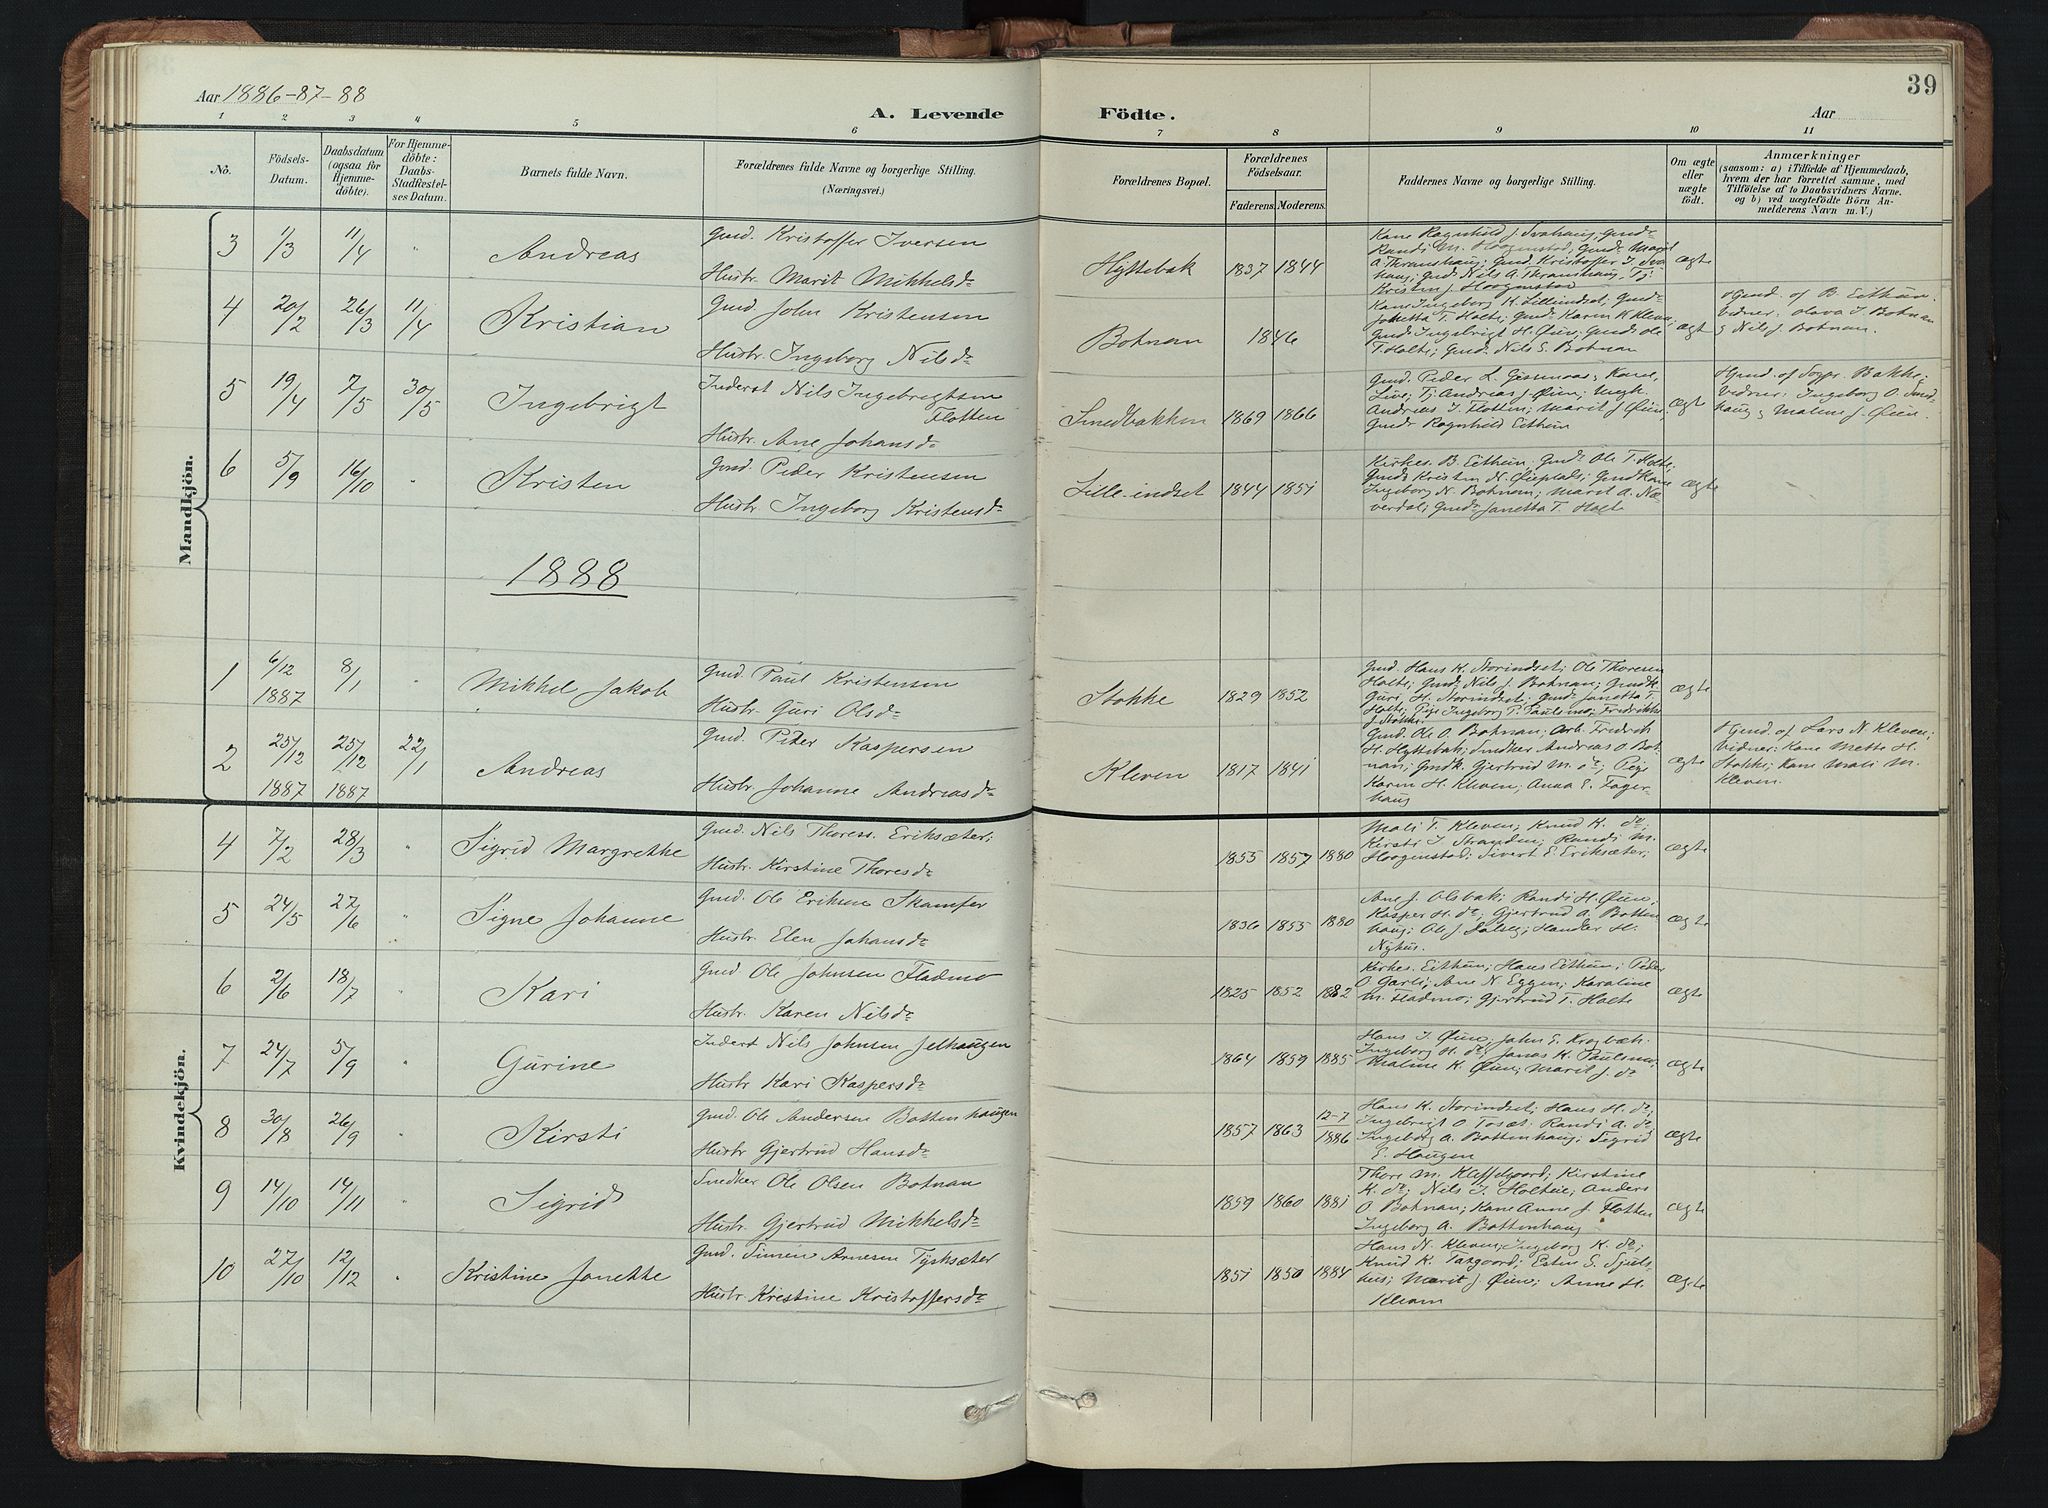 39
Aar 1886-87-88
A. Levende Födte.
Aar
1 2 3 4 5 6 7 8 9 10 11
No.
Födsels-Datum.
Daabsdatum (ogsaa för Hjemmedöbte).
For Hjemmedöbte: Daabs-Stadfæstelses Datum.
Barnets fulde Navn.
Forældrenes fulde Navne og borgerlige Stilling. (Næringsvei.)
Forældrenes Bopæl.
Forældrenes Födselsaar.
Faderens. Moderens.
Faddernes Navne og borgerlige Stilling.
Om ægte eller uægte födt.
Anmærkninger
(saasom: a) i Tilfælde af Hjemmedaab, hvem der har forrettet samme, med Tilföielse af to Daabsvidners Navne. og b) ved uægtefödte Börn Anmelderens Navn m. V.)
Mandkjön.
3 1/3 11/4 " Andreas
Gmd. Kristoffer Iversen
Hustr. Marit Mikkelsdr
Hyttebak 1837 1844
Kone Ragnhild J. Svahaug; Gmdr
Randi M. Hoogenstad, Gmdr Marit
A. Thranshaug; Gmd. Kristoffer I. Sva
haug; Gmd. Nils A. Thranshaug, Tj.
Kristen J. Hoogenstad
ægte
4 20/2 26/3 11/4 Kristian
Gmd. John Kristensen
Hustr. Ingeborg Nilsdr
Botnan 1846
Kone Ingeborg K. Lilleindset; Gmdr
Jonetta T. Holte; Gmdr. Karen K. Kleven;
Gmd. Ingebrigt H. Øien; Gmd. Ole
T. Holte; Gmd. Nils E. Botnan
ægt
Gmd. af B. Eithun.
Vidner: Olava I. Botnan
& Nils J. Botnan.
5 19/4 7/5 30/5 Ingebrigt
Inderst Nils Ingebrigtsen
Flotten
Hustr. Ane Johansdr
Smedbakken 1869 1866
Gmd. Peder L. Gessmoas; Kone
Live; Tj. Andreas J. Øien; Ungk.
Andreas I. Flotten; Marit J. Øien;
Gmdr Ragnhild Eithun
ægte
Gmd. af Bakke;
Vidner: Ingeborg O. Smed
haug & Malene J. Øien.
6 5/9 16/10 " Kristen
Gmd. Peder Kristensen
Hustr Ingeborg Kristensdr
Lille-indset 1844 1851
Kirkes. B. Eithun, Gmdr Ole T. Holte;
Gmd. Kristen N. Øieplads; Gmd Kone
Ingeborg N. Botnan; Marit A. Næ
verdal; Gmdr Janetta T. Holte
ægte
1888
1 6/12 1887 8/1 " Mikkel Jakob
Gmd. Paul Kristensen
Hustr. Guri Olsdr
Stokke 1829 1852
Gmd. Hans K. Storindset; Ole Thoresen
Holte; Gmd. Nils J. Botnan; Gmdk
Guri H. Storindset; Gmdr Janetta T.
Holte; Pige Ingeborg P. Paulsmo; Fredrikke
J. Stokke.
ægte
2 25/12 1887 25/12 1887 22/1 Andreas
Gmd. Peder Kaspersen
Hustr. Johanne Andreasdr
Kleven 1817 1841
Gmd. Ole O. Botnan; Arb. Fredrik
H. Hyttebak; Snedker Andreas O. Bot
nan; Gmdk. Gjertrud M. dr; Pige
Karen H. Kleven; Anna E. Fager
haug
ægte
Gmd. af Lars N. Kleven;
Vidner: Kone Mette H.
Stokke; Kone Mali M.
Kleven.
Kvindekjön.
4 7/2 28/3 " Sigrid Margrethe
Gmd. Nils Thoress. Eriksæter;
Hustr. Kirstine Thoresdr
1855 1857 1880
Mali T. Kleven; Knud K. do;
Kirsti I. Stranden; Randi M.
Hoogenstad; Sivert E. Eriksæter;
ægte
5 24/5 27/6 " Signe Johanne
Gmd. Ole Eriksen Skamfer
Hustr. Elen Johansdr
1836 1855 1880
Ane J. Olsbak; Randi H. Øien;
Kasper H. do; Gjertrud A. Botten
haug; Ole J. Solseg; Handler H.
Nyhus.
ægte
6 2/6 18/7 " Kari
Gmd Ole Johnsen Fladmo
Hustr. Karen Nilsdr
1825 1852 1882
Kirkes. Eithun; Hans Eithun; Peder
O Garli; Ane N. Eggen; Karoline
M. Fladmo; Gjertrud T. Holte
ægte
7 24/7 5/9 " Gurine
Inderst Nils Johnsen Jelhaugen
Hustr Kari Kaspersdr
1864 1859 1885
Hans I. Øien; John E. Krogbæk;
Ingeborg H. do; Jonas K. Paulsmo;
Malene K. Øien; Marit J. do
ægte
8 30/8 26/9 " Kirsti
Gmd. Ole Andersen Bottenhaugen
Hustr Gjertrud Hansdr
1857 1863 12-7 1886
Hans K. Storindset; Hans H. do;
Ingebrigt O. Tosæt; Randi A. do;
Ingeborg A. Bottenhaug; Sigrid
E. Haugen
ægte
9 14/10 14/11 " Sigrid
Snedker Ole Olsen Botnan
Hustr. Gjertrud Mikkelsdr
1859 1860 1881
Thore M. Kleffelgaard; Kirstine
K. do; Nils I. Holteie; Anders
O. Botnan; Kone Anne J. Flotten
Ingeborg A. Bottenhaug
ægte
10 27/10 12/12 " Kristine Jonette
Gmd. Simen Arnesen Tysksæter
Hustr Kirstine Kristoffersdr
1851 1850 1884
Hans N. Kleven; Ingeborg K. do;
Knud K. Taxgaard; Esten S. Sjuls
hus; Marit J. Øien; Anne H.
Kleven
ægte